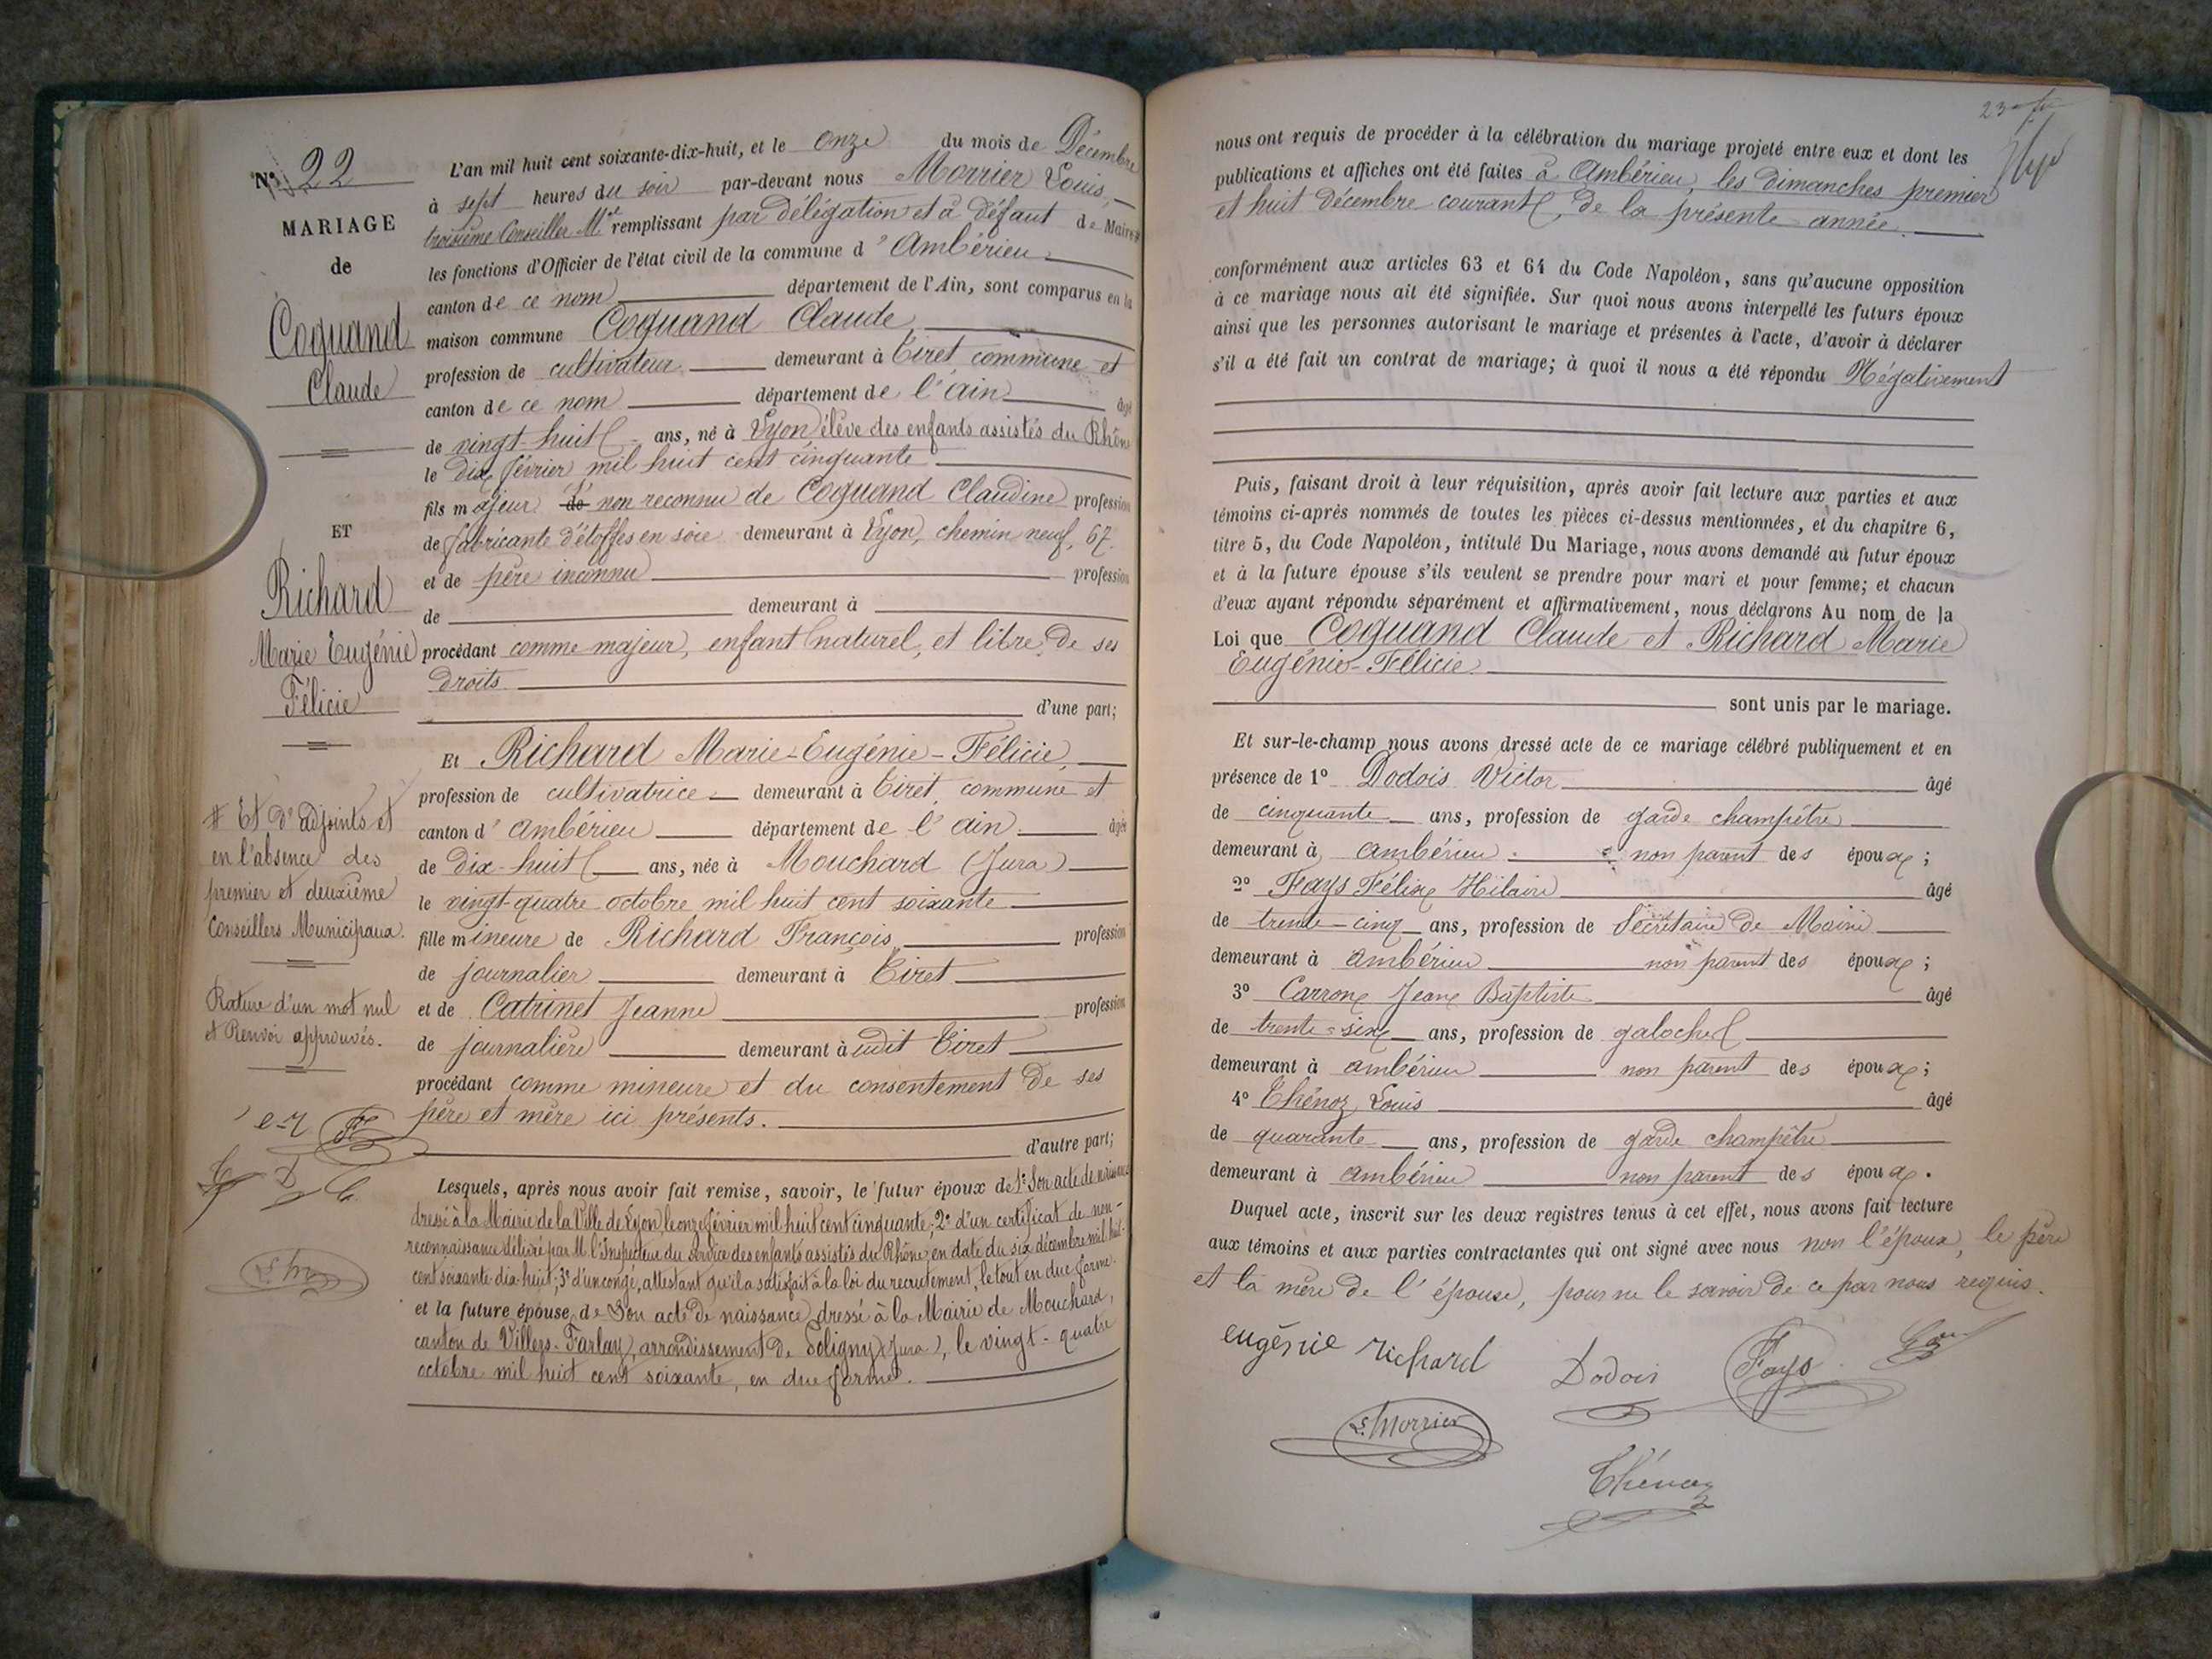 N° 22
MARIAGE
de
Coquand
Claude
ET
Richard
Marie Eugénie
Félicie
# Et d'adjoints et
en l'absence des
premier et deuxième
Conseillers Municipaux.
Rature d'un mot nul
et Renvoi approuvés.
e-r
L'an mil huit cent soixante-dix-huit, et le onze du mois de Décembre
à sept heures du soir par-devant nous Morrier Louis,
troisième Conseiller Mal remplissant par délégation et à défaut de Maire #
les fonctions d'Officier de l'état civil de la commune d'Ambérieu
canton de ce nom département de l'Ain, sont comparus en la
maison commune Coquand Claude,
profession de cultivateur demeurant à Tiret, commune et
canton de ce nom département de l'ain âgé
de vingt-huit ans, né à Lyon élève des enfants assistés du Rhône
le dix février mil huit cent cinquante
fils majeur de non reconnu de Coquand Claudine profession
de fabricante d'étoffes en soie demeurant à Lyon, chemin neuf, 67.
et de père inconnu profession
de demeurant à
procédant comme majeur, enfant naturel, et libre de ses
droits
d'une part;
Et Richard Marie-Eugénie-Félicie,
profession de cultivatrice demeurant à Tiret, commune et
canton d'ambérieu département de l'ain âgée
de dix-huit ans, née à Mouchard (Jura)
le vingt-quatre octobre mil huit cent soixante
fille mineure de Richard François, profession
de journalier demeurant à Tiret
et de Catrinet Jeanne profession
de journalière demeurant à udit Tiret
procédant comme mineure et du consentement de ses
père et mère ici présents.
d'autre part;
Lesquels, après nous avoir fait remise, savoir, le futur époux de 1° Son acte de naissance
dressé à la Mairie de la Ville de Lyon, le onze février mil huit cent cinquante; 2° d'un certificat de non-
reconnaissance délivré par M. l'Inspecteur du service des enfants assistés du Rhône, en date du six décembre mil huit-
cent soixante-dix-huit; 3° d'un congé, attestant qu'il a satisfait à la loi du recrutement, le tout en due forme.
et la future épouse de Son acte de naissance dressé à la Mairie de Mouchard,
canton de Villers-Farlay, arrondissement de Poligny (Jura), le vingt-quatre
octobre mil huit cent soixante, en due forme.
nous ont requis de procéder à la célébration du mariage projeté entre eux et dont les
publications et affiches ont été faites à Ambérieu, les dimanches premier
et huit décembre courant, de la présente année.
conformément aux articles 63 et 64 du Code Napoléon, sans qu'aucune opposition
à ce mariage nous ait été signifiée. Sur quoi nous avons interpellé les futurs époux
ainsi que les personnes autorisant le mariage et présentes à l'acte, d'avoir à déclarer
s'il a été fait un contrat de mariage; à quoi il nous a été répondu Négativement
Puis, faisant droit à leur réquisition, après avoir fait lecture aux parties et aux
témoins ci-après nommés de toutes les pièces ci-dessus mentionnées, et du chapitre 6,
titre 5, du Code Napoléon, intitulé Du Mariage, nous avons demandé au futur époux
et à la future épouse s'ils veulent se prendre pour mari et pour femme; et chacun
d'eux ayant répondu séparément et affirmativement, nous déclarons Au nom de la
Loi que Coquand Claude et Richard Marie
Eugénie-Félicie
sont unis par le mariage.
Et sur-le-champ nous avons dressé acte de ce mariage célébré publiquement et en
présence de 1° Dodois Victor âgé
de cinquante ans, profession de garde champêtre
demeurant à ambérieu non parent des époux;
2° Fays Félix Hilaire âgé
de trente-cinq ans, profession de Secrétaire de Mairie
demeurant à ambérieu non parent des époux;
3° Carron Jean Baptiste âgé
de trente-six ans, profession de galocher
demeurant à ambérieu non parent des époux;
4° Thénoz Louis âgé
de quarante ans, profession de garde champêtre
demeurant à ambérieu non parent des époux.
Duquel acte, inscrit sur les deux registres tenus à cet effet, nous avons fait lecture
aux témoins et aux parties contractantes qui ont signé avec nous non l'époux, le père
et la mère de l'épouse, pour ne le savoir de ce par nous requis.
eugénie richard Dodois Fays
L. Morrier
Thénoz